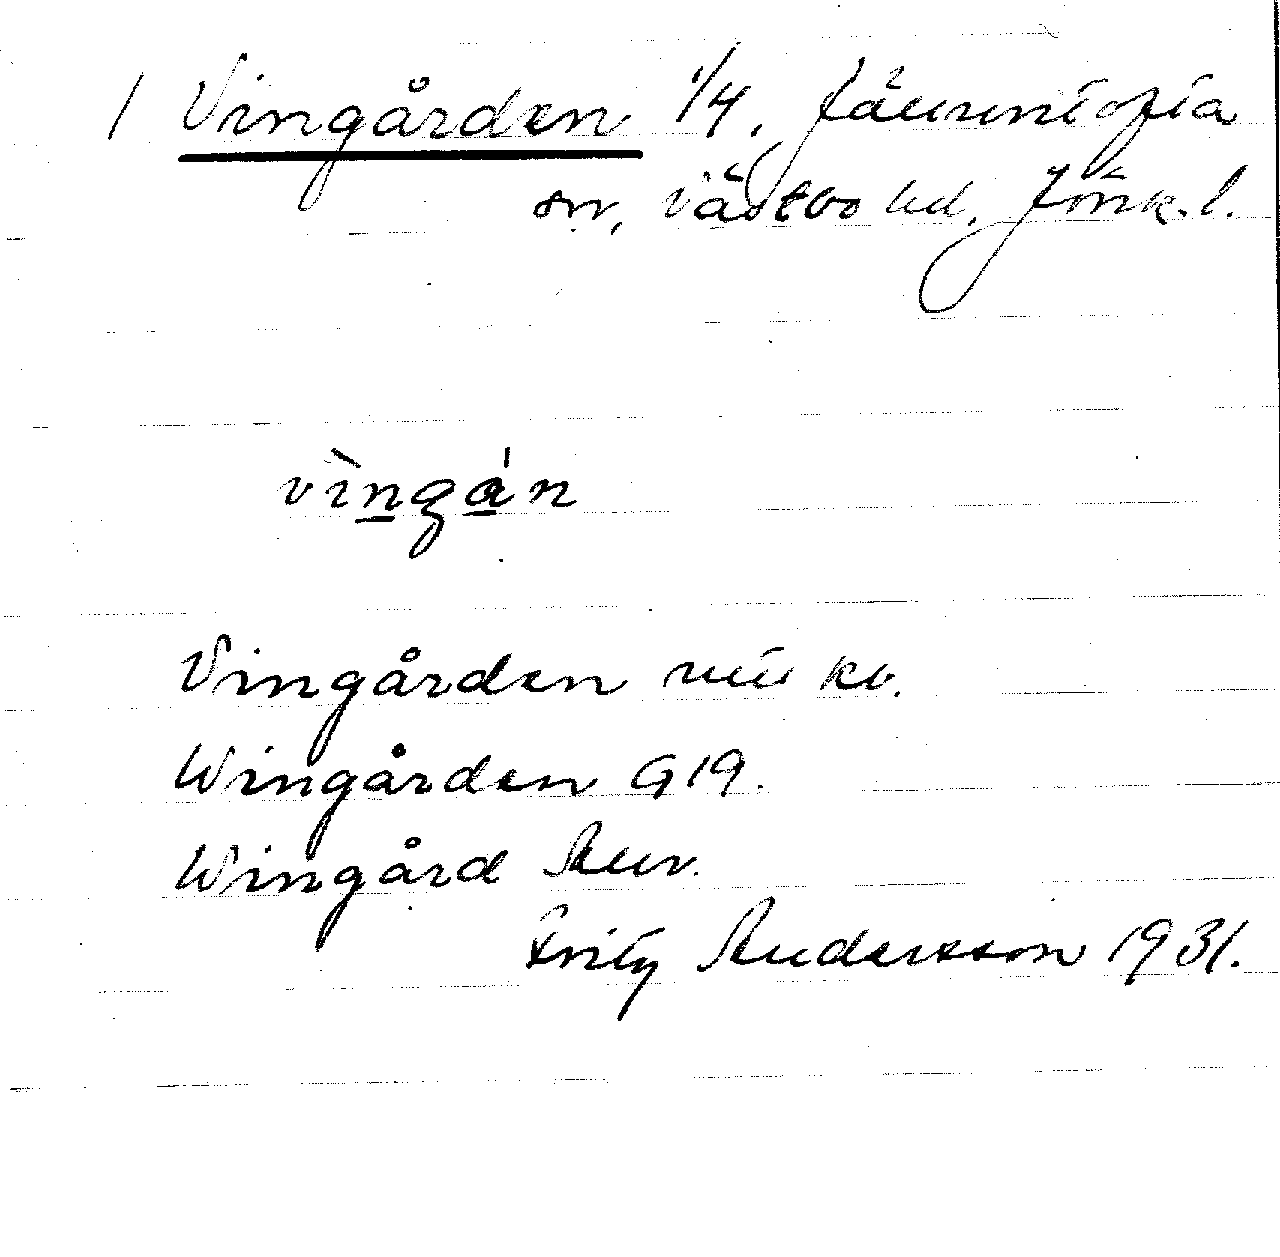 1 Vingården 1/4, Jälluntofta
sn, Västbo hd, Jönk. l.
vìngán
Vingården kb.
Wingården G19.
Wingård
Fritz Andersson 1931.